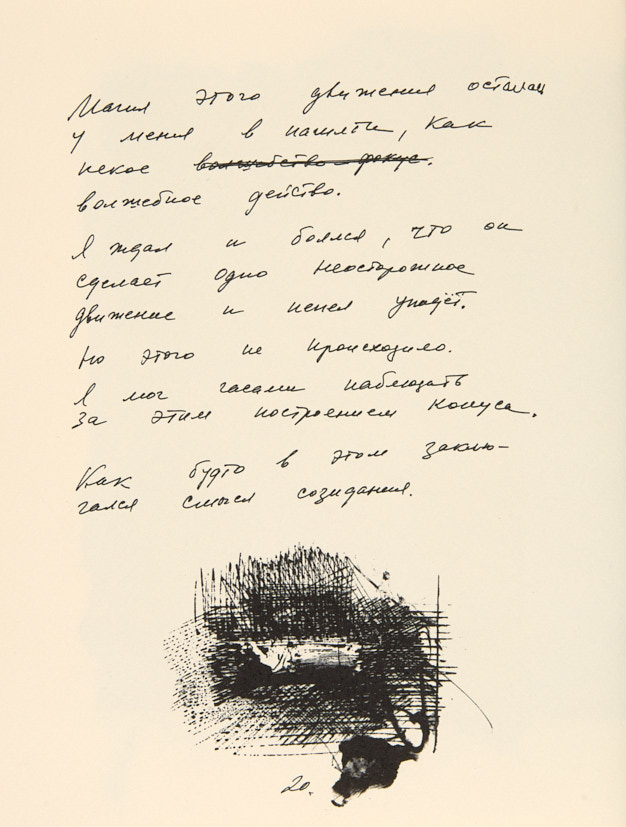 Магия этого движения осталась
у меня в памяти, как
некое волшебство-фокус.
волжебное действо.
Я ждал и боялся, что он
сделает одно неосторожное
движение и пепел упадёт.
Но этого не происходило.
Я мог часами наблюдать
за этим построением конуса.
Как будто в этом заклю-
чался смысл созидания.
20.